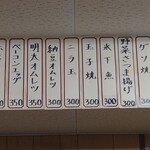 ゲソ焼
野菜さつま揚げ 300
氷下魚 300
玉子焼 300
ニラ玉 300
納豆オムレツ 350
明太オムレツ 350
ベーコンエッグ 350